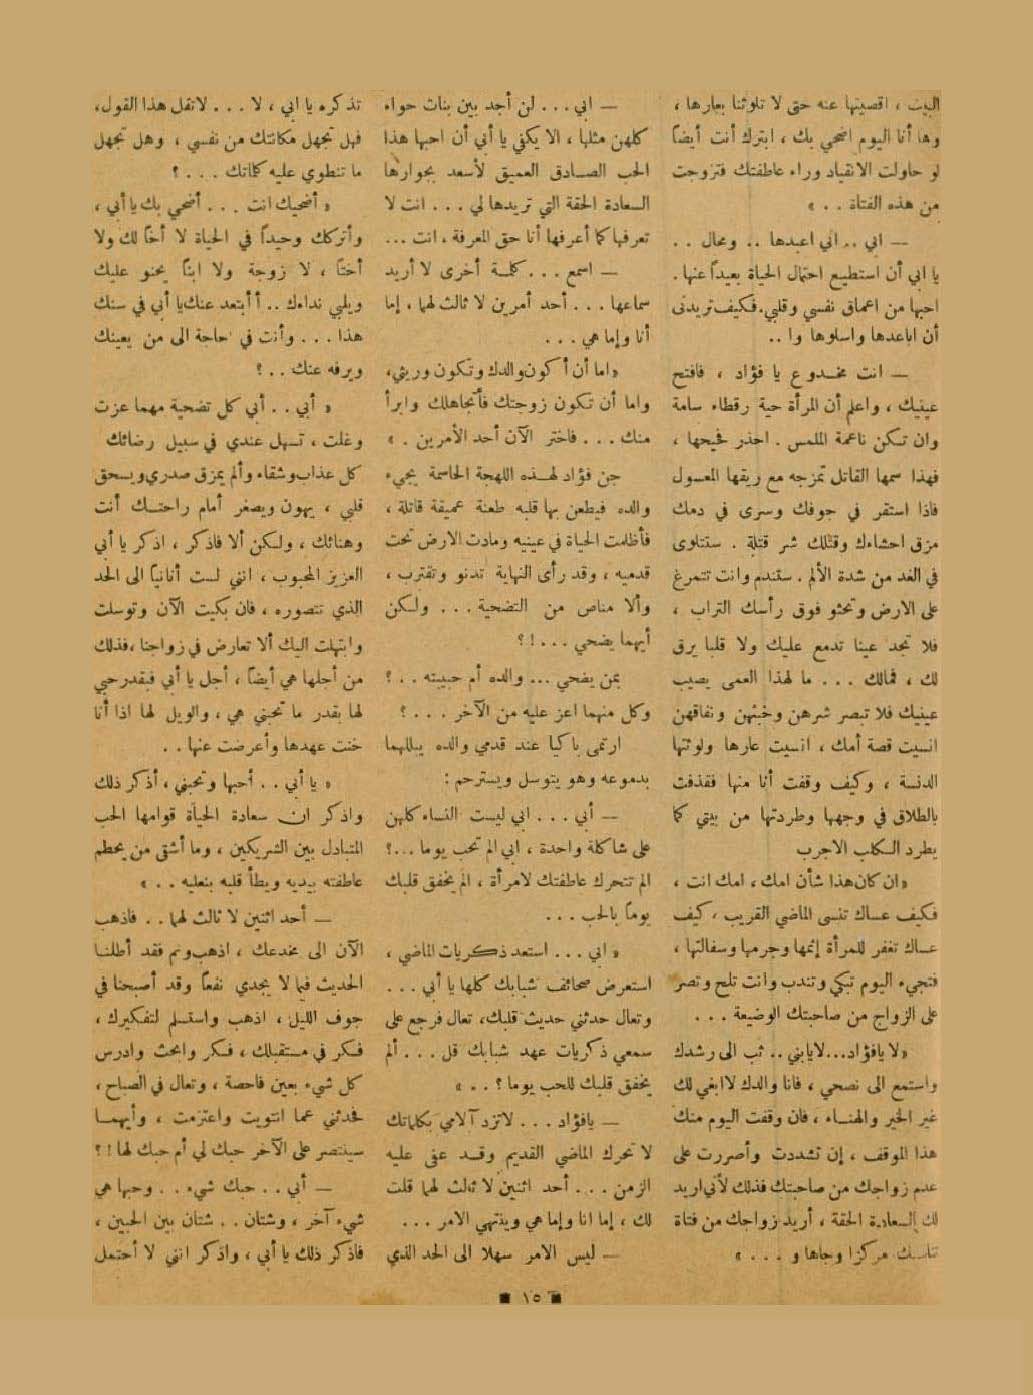 البيت ، اقصيتها عنه حتى لا تلوثنا بعارها ،
وها أنا اليوم اضحي بك ، ابترك أنت أيضاً
لو حاولت الانقياد وراء عاطفتك فتزوجت
من هذه الفتاة . . »
— ابي .. اني اعبدها .. ومحال . .
يا ابي أن استطيع احتمال الحياة بعيداً عنها .
احبها من اعماق نفسي وقلبي . فكيف تريدني
أن اباعدها واسلوها وا ..
— انت مخدوع يا فؤاد ، فافتح
عينيك ، واعلم أن المرأة حية رقطاء سامة
وان تكن ناعمة الملمس . احذر فحيحها ،
فهذا سمها القاتل تمزجه مع ريقها المعسول
فاذا استقر في جوفك وسرى في دمك
مزق احشاءك وقتلك شر قتلة . ستتلوى
في الغد من شدة الألم . ستندم وانت تتمرغ
على الارض وتحثو فوق رأسك التراب ،
فلا تجد عينا تدمع عليك ولا قلبا يرق
لك ، فمالك . . . ما لهذا العمى يصيب
عينيك فلا تبصر شرهن وخبثهن ونفاقهن
انسيت قصة أمك ، انسيت عارها ولوثتها
الدنسة ، وكيف وقفت أنا منها فقذفت
بالطلاق في وجهها وطردتها من بيتي كما
يطرد الكلب الاجرب
« ان كان هذا شأن امك ، امك انت ،
فكيف عساك تنسى الماضي القريب ، كيف
عساك تغفر للمرأة إثمها وجرمها وسفالتها ،
فتجيء اليوم تبكي وتندب وانت تلح وتصر
على الزواج من صاحبتك الوضيعة . . .
« لا يا فؤاد... لا يا بني .. ثب الى رشدك
واستمع الى نصحي ، فانا والدك لا ابغي لك
غير الخير والهناء ، فان وقفت اليوم منك
هذا الموقف ، إن تشددت وأصررت على
عدم زواجك من صاحبتك فذلك لأني اريد
لك السعادة الحقة ، أريد زواجك من فتاة
تناسبك مركزا وجاها و . . . »
— ابي ... لن أجد بين بنات حواء
كلهن مثلها ، الا يكفي يا أبي أن احبها هذا
الحب الصادق العميق لأسعد بجوارها
السعادة الحقة التي تريدها لي . . . انت لا
تعرفها كما أعرفها أنا حق المعرفة ، انت ...
— اسمع ... كلمة أخرى لا أريد
سماعها . . . أحد أمرين لا ثالث لهما ، إما
أنا وإما هي . . .
« اما أن أكون والدك وتكون وريثي ،
واما أن تكون زوجتك فأتجاهلك وابرأ
منك . . . فاختر الآن أحد الأمرين . »
جن فؤاد لهذه اللهجة الحاسمة يجيء
والده فيطعن بها قلبه طعنة عميقة قاتلة ،
فأظلمت الحياة في عينيه ومادت الارض تحت
قدميه ، وقد رأى النهاية تدنو وتقترب ،
وألا مناص من التضحية ... ولكن
أيهما يضحي . . . ! ؟
بمن يضحي ... والده أم حبيبته . . ؟
وكل منهما اعز عليه من الآخر . . . ؟
ارتمى باكيا عند قدمي والده يبللهما
بدموعه وهو يتوسل ويسترحم :
— أبي . . . ابي ليست النساء كلهن
على شاكلة واحدة ، ابي الم تحب يوما ...؟
الم تتحرك عاطفتك لامرأة ، الم يخفق قلبك
يوماً بالحب . . .
« ابي ... استعد ذكريات الماضي ،
استعرض صحائف شبابك كلها يا أبي . . .
وتعال حدثني حديث قلبك ، تعال فرجع على
سمعي ذكريات عهد شبابك قل . . . ألم
يخفق قلبك للحب يوما ؟ . . »
— يا فؤاد . . . لا تزد آلامي بكلماتك
لا تحرك الماضي القديم وقد عفى عليه
الزمن . . . أحد اثنين لا ثالث لهما قلت
لك ، إما انا وإما هي وينتهي الامر . . .
— ليس الامر سهلا الى الحد الذي
تذكره يا ابي ، لا . . . لا تقل هذا القول ،
فهل تجهل مكانتك من نفسي ، وهل تجهل
ما تنطوي عليه كلماتك . . . ؟
« أضحيك انت . . . أضحي بك يا أبي ،
وأتركك وحيداً في الحياة لا أخاً لك ولا
أختاً ، لا زوجة ولا ابناً يحنو عليك
ويلبي نداءك .. أ أبتعد عنك يا أبي في سنك
هذا . . . وأنت في حاجة الى من يعينك
ويرفه عنك . . ؟
« أبي . . أبي كل تضحية مهما عزت
وغلت ، تسهل عندي في سبيل رضائك
كل عذاب وشقاء وألم يمزق صدري ويسحق
قلبي ، يهون ويصغر أمام راحتك أنت
وهنائك ، ولكن ألا فاذكر ، اذكر يا أبي
العزيز المحبوب ، انني لست أنانياً الى الحد
الذي تتصوره ، فان بكيت الآن وتوسلت
وابتهلت اليك ألا تعارض في زواجنا ، فذلك
من أجلها هي أيضاً ، أجل يا أبي فبقدر حبي
لها بقدر ما تحبني هي ، والويل لها اذا أنا
خنت عهدها وأعرضت عنها . .
« يا أبي . . أحبها وتحبني ، أذكر ذلك
واذكر ان سعادة الحياة قوامها الحب
المتبادل بين الشريكين ، وما أشقى من يحطم
عاطفته بيديه ويطأ قلبه بنعليه . . »
— أحد اثنين لا ثالث لهما . . فاذهب
الآن الى مخدعك ، اذهب ونم فقد أطلنا
الحديث فيما لا يجدي نفعاً وقد أصبحنا في
جوف الليل ، اذهب واستسلم لتفكيرك ،
فكر في مستقبلك ، فكر وابحث وادرس
كل شيء بعين فاحصة ، وتعال في الصباح ،
فحدثني عما انتويت واعتزمت ، وأيهما
سينتصر على الآخر حبك لي أم حبك لها ! ؟
— أبي . . حبك شيء . . وحبها هي
شيء آخر ، وشتان . . شتان بين الحبين ،
فاذكر ذلك يا أبي ، واذكر انني لا أحتمل
■ ١٥ ■